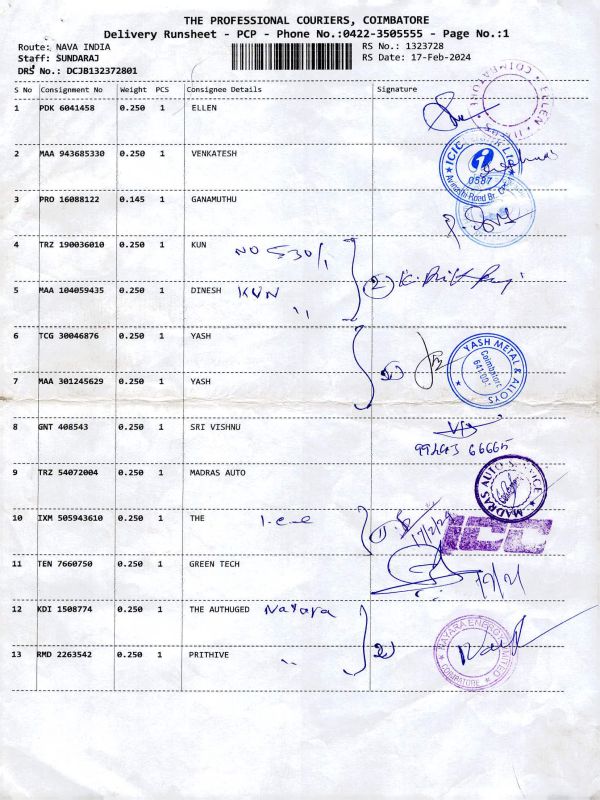 THE PROFESSIONAL COURIERS, COIMBATORE
Delivery Runsheet - PCP - Phone No.:0422-3505555 - Page No.:1
Route: NAVA INDIA RS No.: 1323728
Staff: SUNDARAJ RS Date: 17-Feb-2024
DRS No.: DCJB132372801
S No Consignment No Weight PCS Consignee Details Signature
1 PDK 6041458 0.250 1 ELLEN
ELLEN COIMBATORE
2 MAA 943685330 0.250 1 VENKATESH
ICICI Bank Ltd
0587
Avinashi Road Br.
3 PRO 16088122 0.145 1 GANAMUTHU
4 TRZ 190036010 0.250 1 KUN NO 530/1
5 MAA 104059435 0.250 1 DINESH KUN ,, 2
6 TCG 30046876 0.250 1 YASH
7 MAA 301245629 0.250 1 YASH
YASH METAL & ALLOYS
Coimbatore
8 GNT 408543 1 SRI VISHNU
9 TRZ 54072004 0.250 1 MADRAS AUTO
MADRAS AUTO SERVICE
10 IXM 505943610 0.250 1 THE I.C.C 1 17/2/24
ICC
11 TEN 7660750 0.250 1 GREEN TECH
12 KDI 1508774 0.250 1 THE AUTHUGED Nayara
13 RMD 2263542 0.250 1 PRITHIVE ,, 2
NAYARA ENERGY LIMITED
COIMBATORE